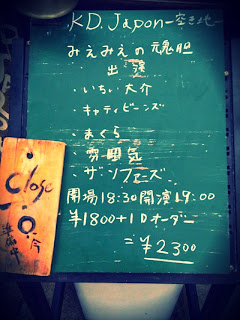 K.D. Japon -空き地-
みえみえの魂胆
出演
・いちい大介
・キャティビーンズ
・まくら
・雰囲気
・ザ・シフェーズ
開場18:30開演19:00
¥1800+1Dオーダー
=¥2300
Close
今
準備中